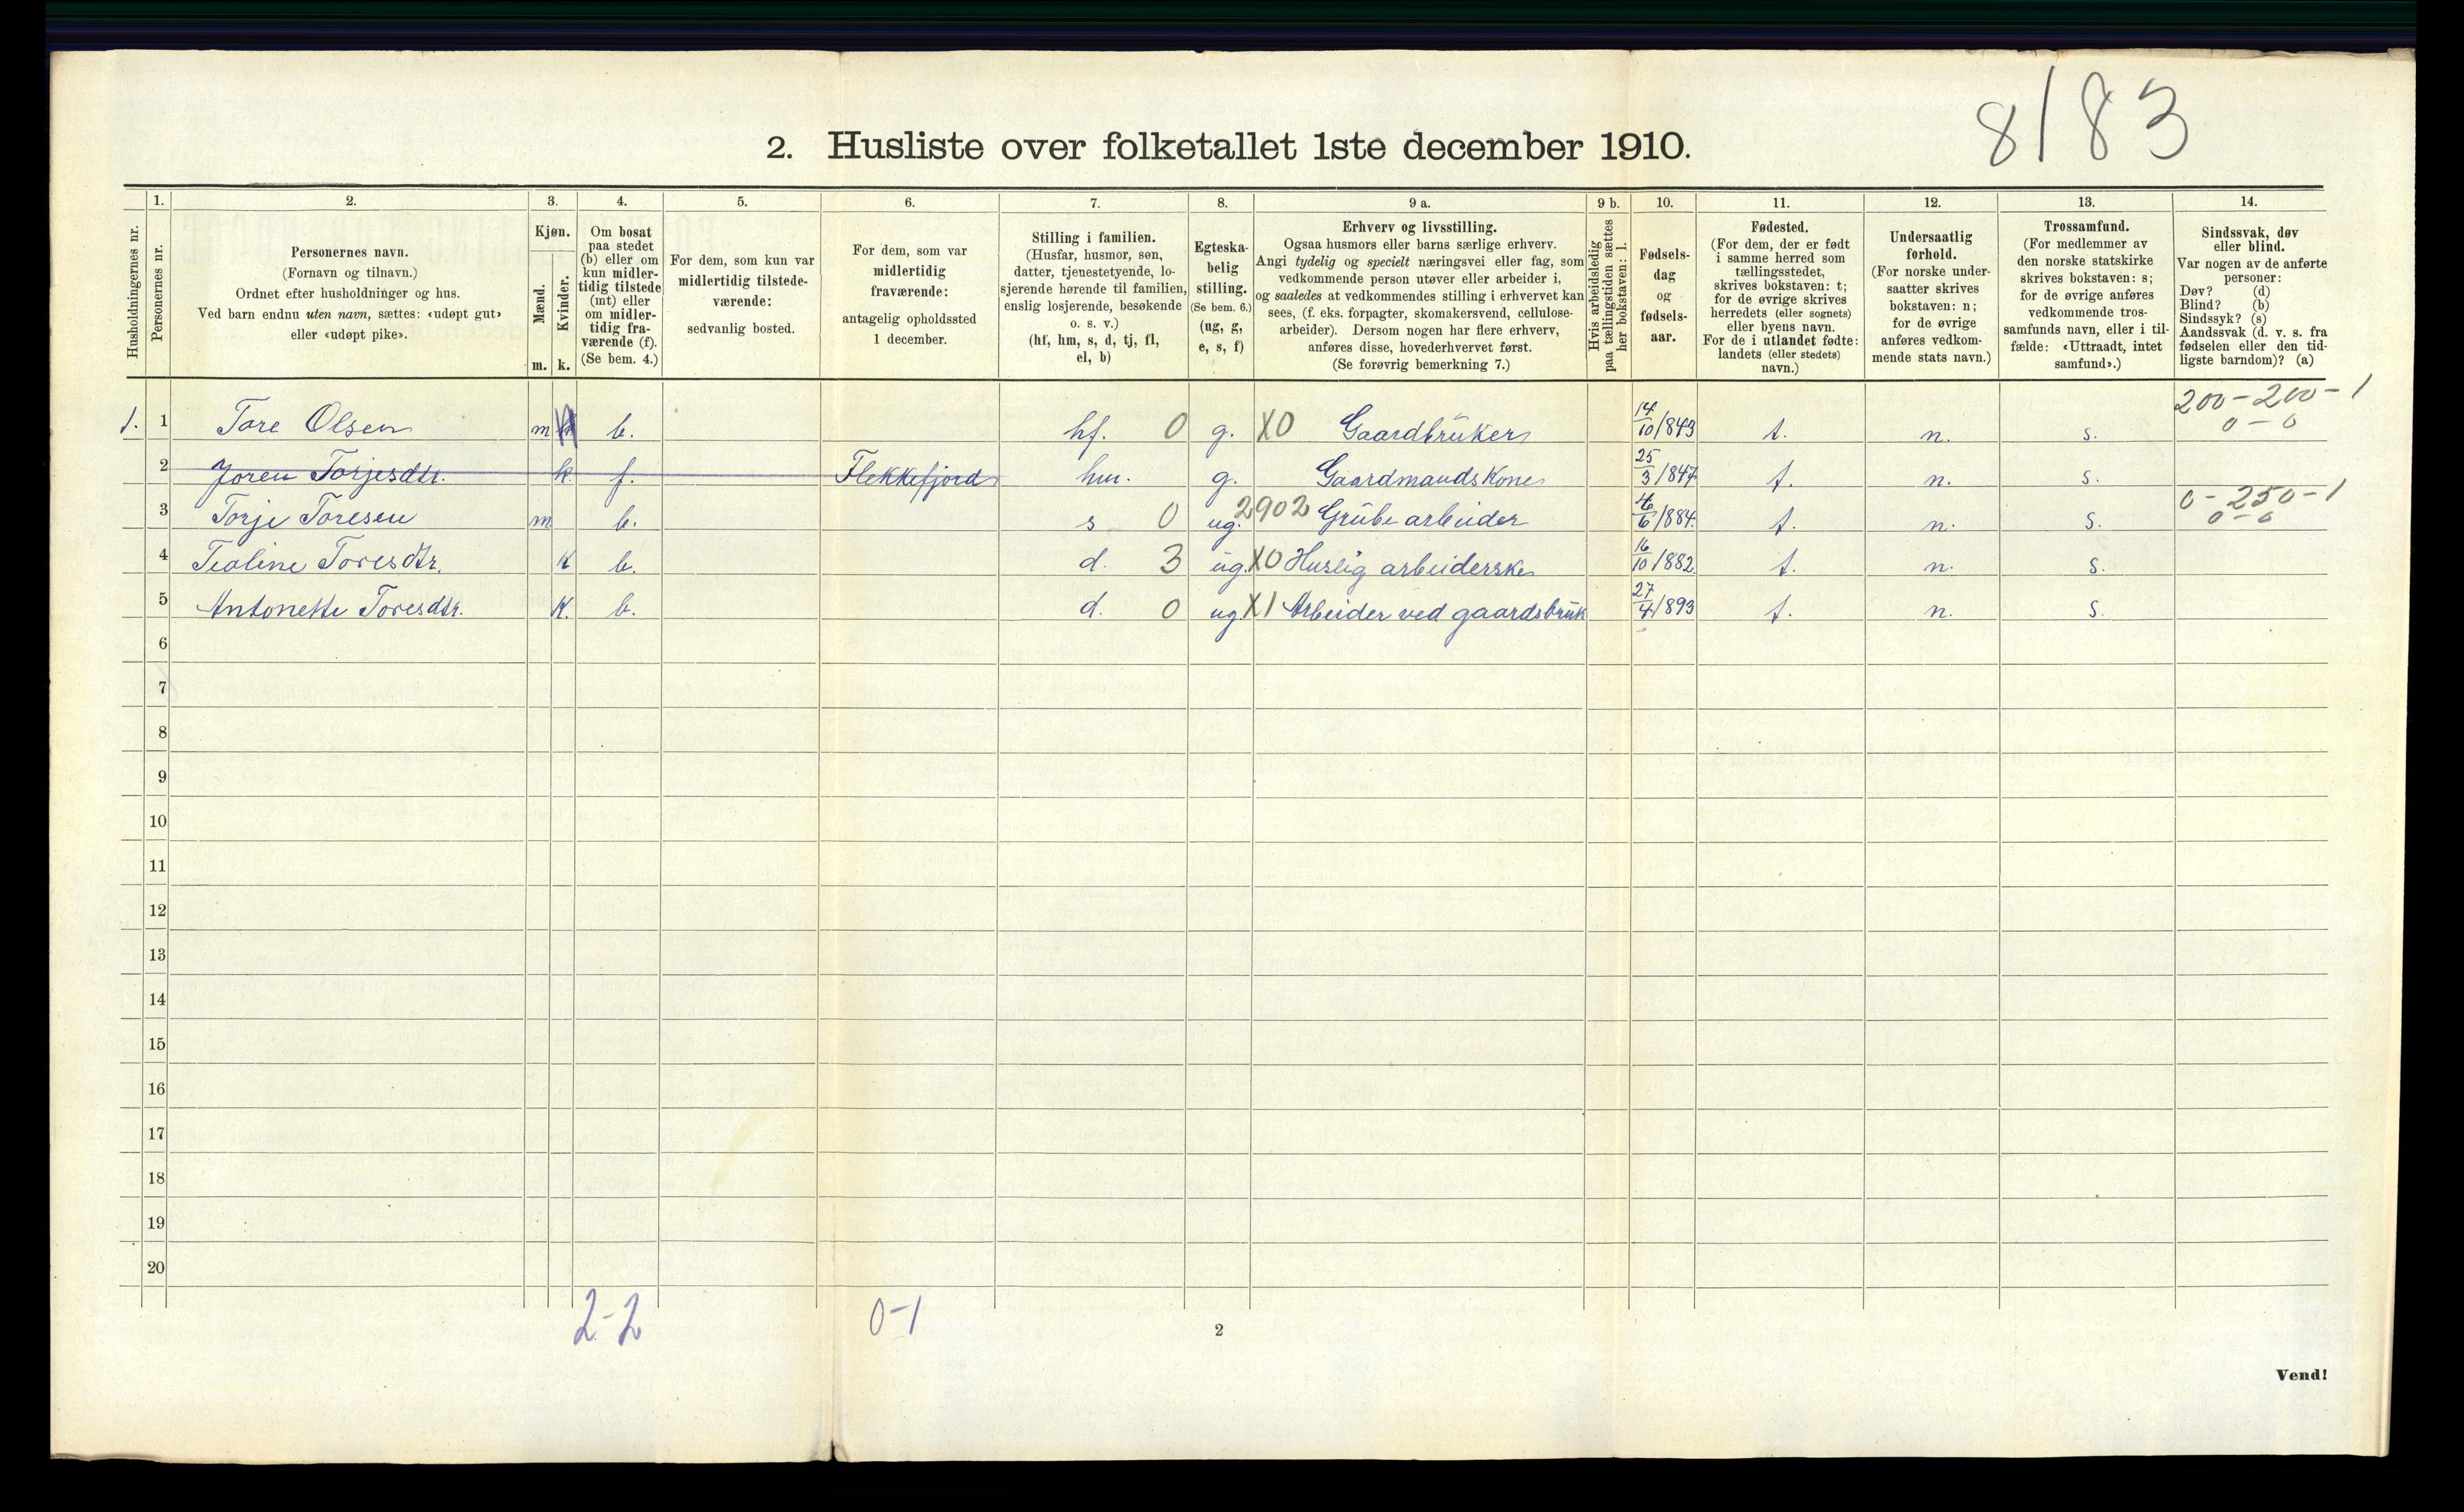 8183
2. Husliste over folketallet 1ste december 1910.
Husholdningernes nr.
1.
Personernes nr.
2.
Personernes navn.
(Fornavn og tilnavn.)
Ordnet efter husholdninger og hus.
Ved barn endnu uten navn, sættes: «udøpt gut»
eller «udøpt pike».
3.
Kjøn.
Mænd.
m.
Kvinder.
k.
4.
Om bosat
paa stedet
(b) eller om
kun midler-
tidig tilstede
(mt) eller
om midler-
tidig fra-
værende (f).
(Se bem. 4.)
5.
For dem, som kun var
midlertidig tilstede-
værende:
sedvanlig bosted.
6.
For dem, som var
midlertidig
fraværende:
antagelig opholdssted
1 december.
7.
Stilling i familien.
(Husfar, husmor, søn,
datter, tjenestetyende, lo-
sjerende hørende til familien,
enslig losjerende, besøkende
o. s. v.)
(hf, hm, s, d, tj, fl,
el, b)
8.
Egteska-
belig
stilling.
(Se bem. 6.)
(ug, g,
e, s, f)
9 a.
Erhverv og livsstilling.
Ogsaa husmors eller barns særlige erhverv.
Angi tydelig og specielt næringsvei eller fag, som
vedkommende person utøver eller arbeider i,
og saaledes at vedkommendes stilling i erhvervet kan
sees, (f. eks. forpagter, skomakersvend, cellulose-
arbeider). Dersom nogen har flere erhverv,
anføres disse, hovederhvervet først.
(Se forøvrig bemerkning 7.)
9 b.
Hvis arbeidsledig
paa tællingstiden sættes
her bokstaven: l.
10.
Fødsels-
dag
og
fødsels-
aar.
11.
Fødested.
(For dem, der er født
i samme herred som
tællingsstedet,
skrives bokstaven: t;
for de øvrige skrives
herredets (eller sognets)
eller byens navn.
For de i utlandet fødte:
landets (eller stedets)
navn.)
12.
Undersaatlig
forhold.
(For norske under-
saatter skrives
bokstaven: n;
for de øvrige
anføres vedkom-
mende stats navn.)
13.
Trossamfund.
(For medlemmer av
den norske statskirke
skrives bokstaven: s;
for de øvrige anføres
vedkommende tros-
samfunds navn, eller i til-
fælde: «Uttraadt, intet
samfund».)
14.
Sindssvak, døv
eller blind.
Var nogen av de anførte
personer:
Døv? (d)
Blind? (b)
Sindssyk? (s)
Aandssvak (d. v. s. fra
fødselen eller den tid-
ligste barndom)? (a)
1. 1 Tore Olsen m b. hf. 0 g. X0 Gaardbruker 14/10/843 t. n. s. 200-200-1 0-0
2 Joren Torjesdtr. k. f. Flekkefjord hm. g. Gaardmandskone 25/3/847 t. n. s.
3 Torje Toresen m b. s 0 ug. 2902 Grubearbeider /6/884. t. n. s. 0-250-1 0-0
4 Teoline Toresdtr. k b. d. 3 ug X0 Huslig arbeiderske 16/10/882. t. n. s.
5 Antonette Toresdtr. K. b. d. 0 ug. X1 Arbeider ved gaardsbruk 27/4/893 t. n. s.
6
7
8
9
10
11
12
13
14
15
16
17
18
19
20
2-2 0-1
2
Vend!